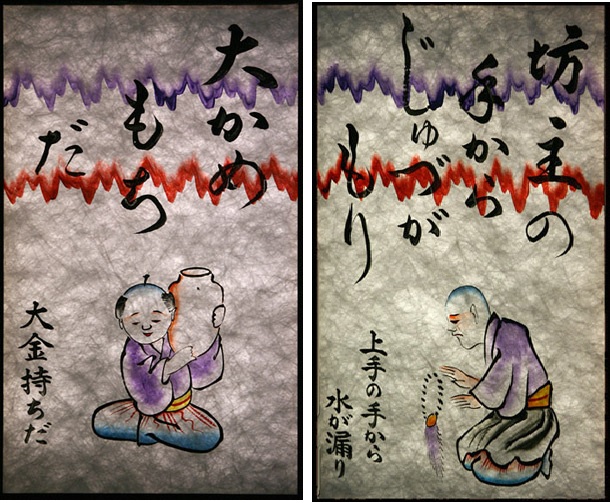 大かめ
もち
だ
大金持ちだ
坊主の
手から
じゅづが
もり
上手の手から
水が漏り